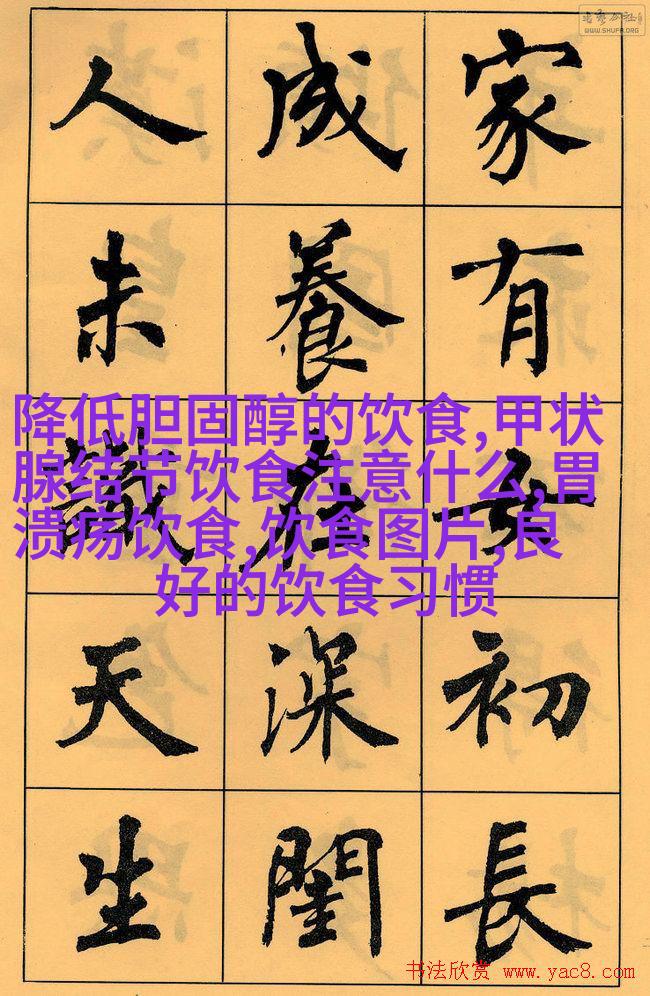 WWW.SHUFA.ORG
家有女初長
成養在深閨
人未識天生
降低胆固醇的饮食,甲状
腺结节饮食注意什么,胃
溃疡饮食,饮食图片,良
好的饮食习惯
书法欣赏 www.yac8.com